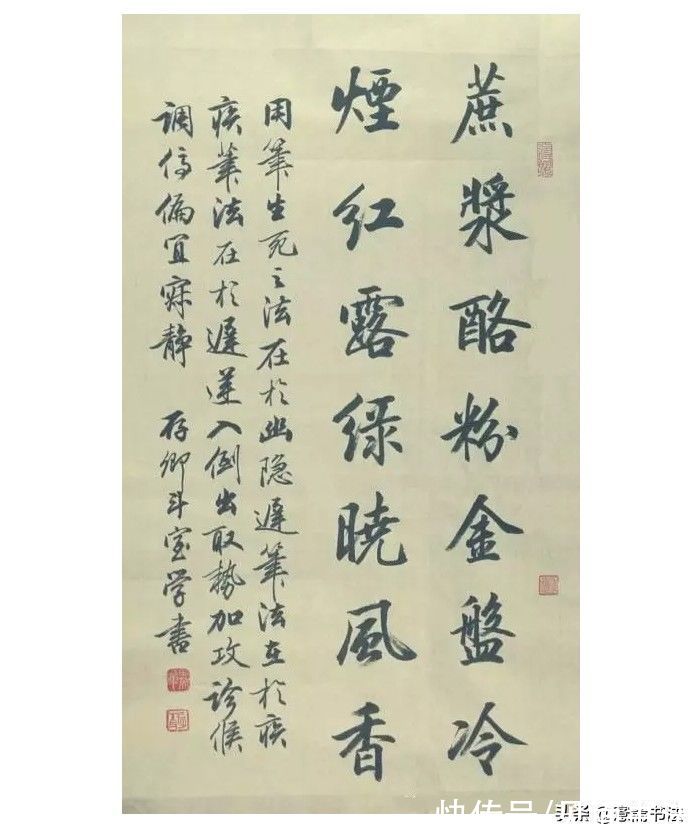 蔗漿酪粉金盤冷
煙紅露綠曉風香
用筆生死之法在於幽隱遲筆法在於疾
疾筆法在於遲逆入倒出取勢加攻診候
調停偏宜寂靜 存卿斗室学書
快传号/
头条@憲誌书法